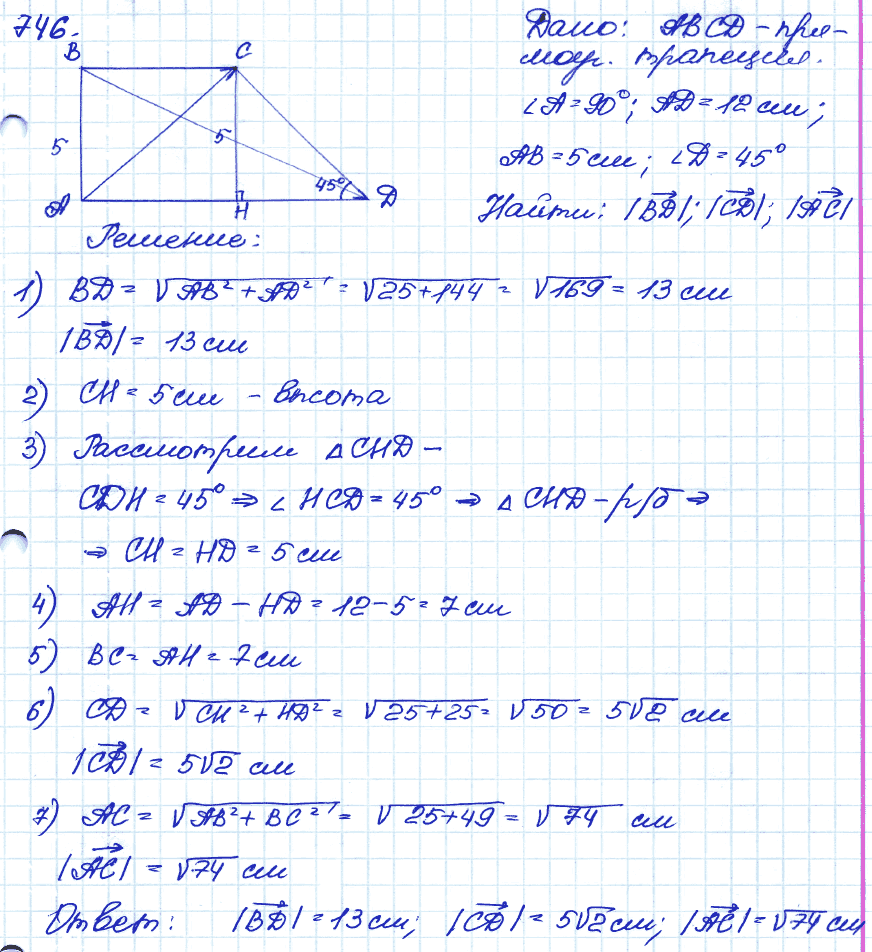 746.
Дано: ABCD – пря-
моуг. трапеция.
∠A = 90°; AD = 12 см;
AB = 5 см; ∠D = 45°
Найти: |BD|; |CD|; |AC|
B
C
5
5
45°
A
H
D
Решение:
1) BD = √AB² + AD² = √25+144 = √169 = 13 см
|BD| = 13 см
2) CH = 5 см – высота
3) Рассмотрим △CHD –
CDH = 45° ⇒ ∠HCD = 45° ⇒ △CHD – р/б ⇒
⇒ CH = HD = 5 см
4) AH = AD – HD = 12 – 5 = 7 см
5) BC = AH = 7 см
6) CD = √CH² + HD² = √25+25 = √50 = 5√2 см
|CD| = 5√2 см
7) AC = √AB² + BC² = √25+49 = √74 см
|AC| = √74 см
Ответ: |BD| = 13 см; |CD| = 5√2 см; |AC| = √74 см